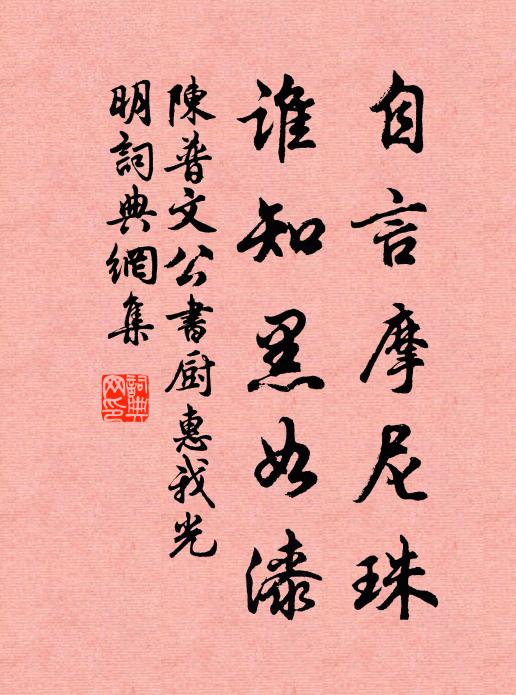 自言摩尼珠
誰知黑如漆
陳普文公書厨惠我光
明詞典網集
詞典
网印